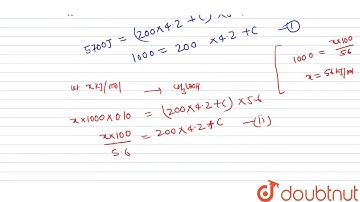 5700J = (200×4.2 + C) ×
1000 = 200 ×4.2 +C —(i)
x×1000×0.10 = (200×4.2+C) ×5.6
x×100/5.6 = 200×4.2+C —(ii)
1000 = x×100/5.6
x = 56 kJ/mol
doubtnut